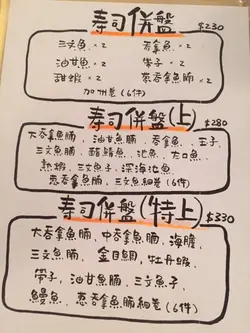 寿司併盤 $230
三文魚×2 吞拿魚×2
油甘魚×2 帶子×2
甜蝦×2 葱吞魚腩×2
加州卷(6件)
寿司併盤(上) $280
大吞拿魚腩、油甘魚腩、吞拿魚、玉子、
三文魚腩、醋鯖魚、池魚、大口魚
熱蝦、三文魚子、深海池魚
葱吞拿魚腩、三文魚細卷(6件)
寿司併盤(特上) $330
大吞拿魚腩、中吞拿魚腩、海膽、
三文魚腩、金目鯛、牡丹蝦、
帶子、油甘魚腩、三文魚子、
鰻魚、葱吞拿魚腩細卷(6件)